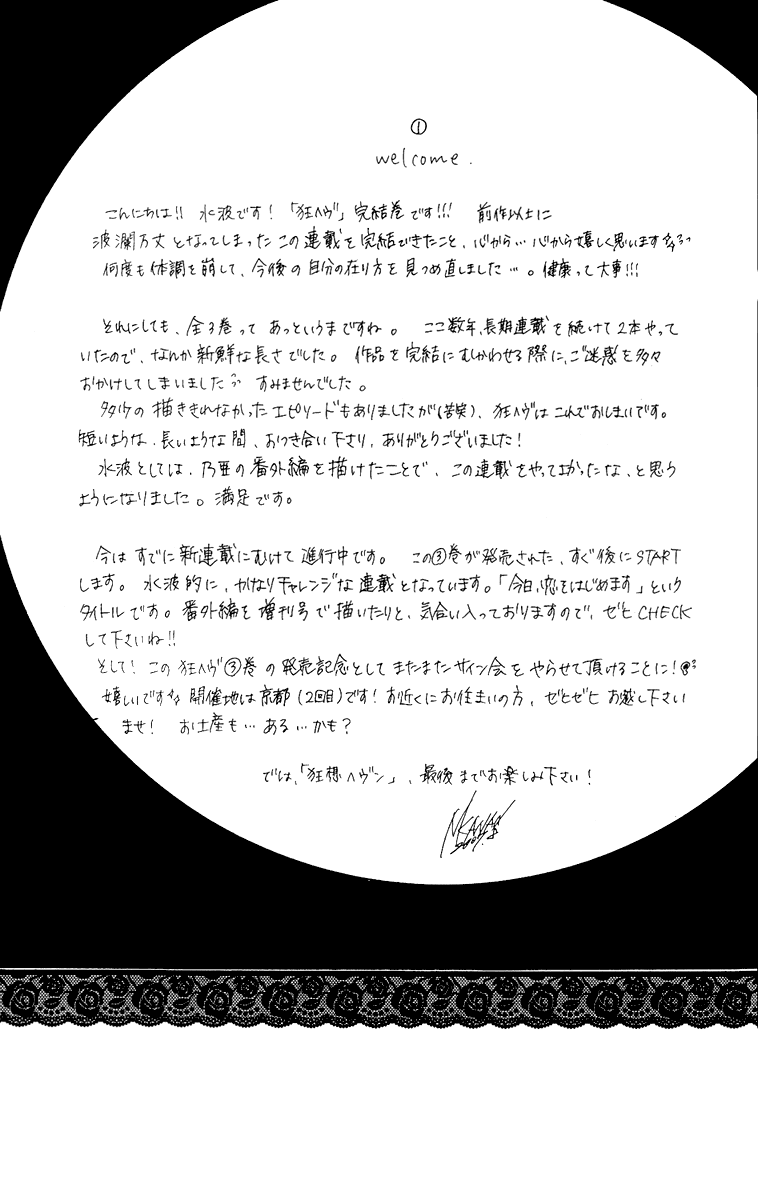 ①
welcome.
こんにちは!! 水波です!「狂ヘヴ」完結巻です!!! 前作以上に
波瀾万丈となってしまったこの連載を完結できたこと、心から…心から嬉しく思います
何度も体調を崩して、今後の自分の在り方を見つめ直しました…。健康って大事!!!
それにしても、全3巻ってあっというまですね。ここ数年、長期連載を続けて2本やって
いたので、なんか新鮮な長さでした。作品を完結にむかわせる際に、ご迷惑を多々
おかけしてしまいました すみませんでした。
多々の描ききれなかったエピソードもありましたが(苦笑)、狂ヘヴはこれでおしまいです。
短いような、長いような間、おつき合い下さり、ありがとうございました!
水波としては、乃亜の番外編を描けたことで、この連載をやってよかったな、と思う
ようになりました。満足です。
今はすでに新連載にむけて進行中です。この③巻が発売された、すぐ後にSTART
します。水波的に、かなりチャレンジな連載となっています。「今日、恋をはじめます」という
タイトルです。番外編を増刊号で描いたりと、気合い入っておりますので、ぜひCHECK
して下さいね!!
そして!この狂ヘヴ③巻の発売記念としてまたまたサイン会をやらせて頂けることに!
嬉しいです 開催地は京都(2回目)です!お近くにお住まいの方、ぜひぜひお越し下さい
ませ! お土産も…ある…かも?
では、「狂想ヘヴン」、最後までお楽しみ下さい!